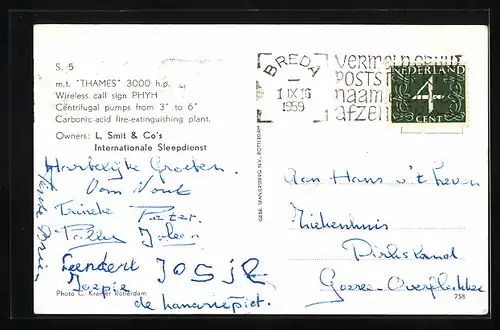 S. 5
m.t. "THAMES" 3000 h.p.
Wireless call sign PHYH
Centrifugal pumps from 3" to 6"
Carbonic-acid fire-extinguishing plant.
Owners: L. Smit & Co's
Internationale Sleepdienst
Hartelijke Groeten
Oom
Tante
Trineke
Pieter
Leendert JOSJE
Joepie
de kanariepiet.
Photo C. Kramer Rotterdam
GEBR. SPANJERSBERG N.V., ROTTERDAM
BREDA
1 IX 16
1959
VERMELD OP UW
POSTST
naam e
afzen
NEDERLAND
4
CENT
Aan Hans v 't
Ziekenhuis
Dirksland
Goeree-Overflakkee
758